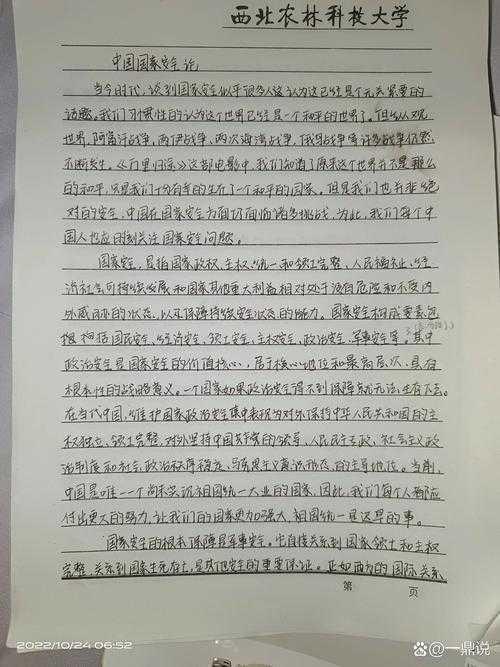 西北农林科技大学
中国国家安全论
当今时代，谈到国家安全似乎很多人这认为这已经是个无关紧要的
话题。我们习惯性的认为这个世界已经是一个和平的世界了。但纵观
世界，阿富汗战争，两伊战争，两次海湾战争，俄乌战争等许多战争依然
不断发生。《万里归途》这部电影中，我们知道了原来这个世界并不是那么
的和平，只是我们十分有幸的生在了一个和平的国家。但是我们也并非绝
对的安全，中国在国家安全方面仍面临诸多挑战，为此，我们每个中
国人也应时刻关注国家安全问题。
国家安全，是指国家政权、主权、统一和领土完整、人民福祉、经
济社会可持续发展和国家其他重大利益相对处于没有危险和不受内
外威胁的状态，以及保障持续安全状态的能力。国家安全构成要素包
括国民安全，经济安全，领土安全，主权安全，政治安全，军事安全等，其中
政治安全是国家安全的价值核心，居于核心地位和最高层次，具有
根本性的战略意义。一个国家如果政治安全得不到保障就无法生存下去。
在当代中国，维护国家政治安全集中表现为对外保持中华人民共和国的主
权独立、领土完整，对内坚持中国共产党的领导、人民民主专政、社会主义政
治制度和社会政治秩序稳定、马克思主义意识形态的主导地位。当前，
中国是唯一个尚未完成祖国统一大业的国家，因此，我们每个人都应
付出更大的努力，让我们的国家更加强大，祖国统一是迟早的事。
国家安全的根本保障是军事安全，它直接关系到国家领土和主权
完整，关系到国家生死存亡，是其他安全的重要保证。正如西方的国际关系
第 页
2022/10/24 06:52
Bai百科 @一鼎说